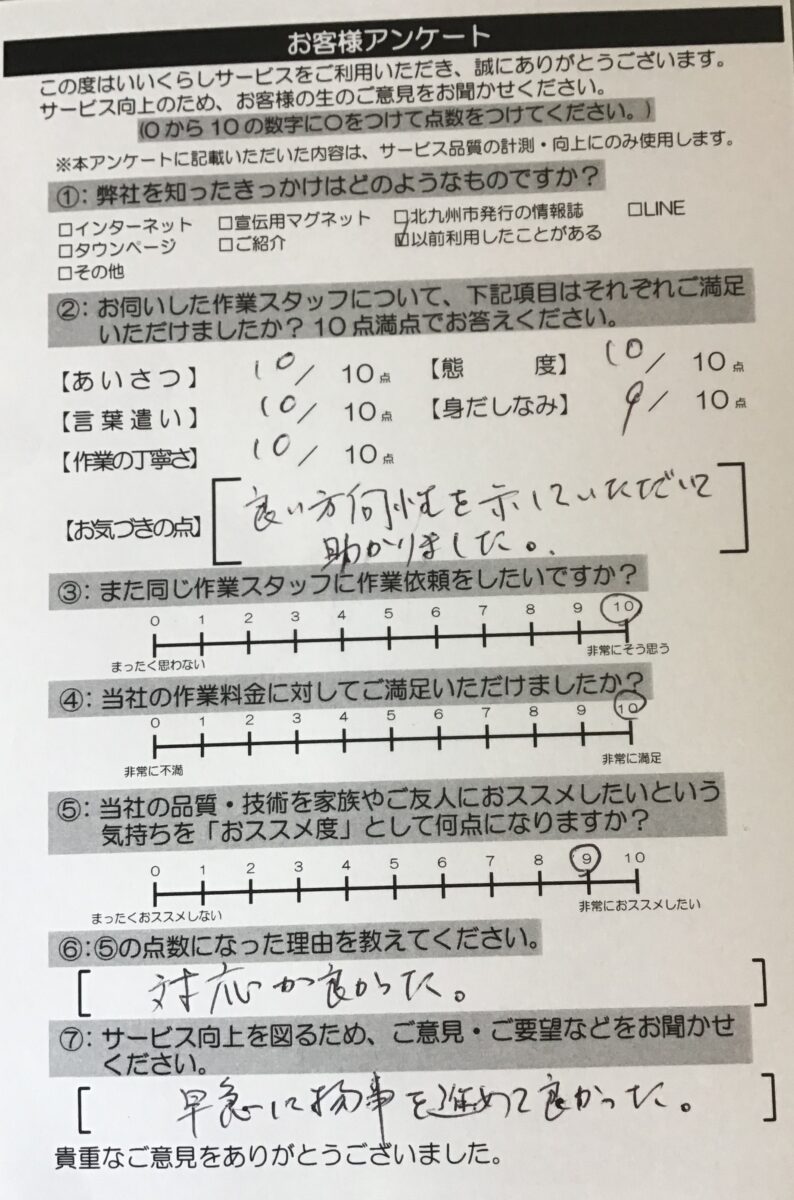 お客様アンケート
この度はいいくらしサービスをご利用いただき、誠にありがとうございます。
サービス向上のため、お客様の生のご意見をお聞かせください。
(0から10の数字に○をつけて点数をつけてください。)
※本アンケートに記載いただいた内容は、サービス品質の計測・向上にのみ使用します。
①：弊社を知ったきっかけはどのようなものですか？
□インターネット □宣伝用マグネット □北九州市発行の情報誌 □LINE
□タウンページ □ご紹介 ☑以前利用したことがある
□その他
②：お伺いした作業スタッフについて、下記項目はそれぞれご満足
いただけましたか？10点満点でお答えください。
【あいさつ】 10/10点 【態度】 10/10点
【言葉遣い】 10/10点 【身だしなみ】 9/10点
【作業の丁寧さ】 10/10点
【お気づきの点】 良い方向性を示していただいて
助かりました。
③：また同じ作業スタッフに作業依頼をしたいですか？
0 1 2 3 4 5 6 7 8 9 10
まったく思わない 非常にそう思う
④：当社の作業料金に対してご満足いただけましたか？
0 1 2 3 4 5 6 7 8 9 10
非常に不満 非常に満足
⑤：当社の品質・技術を家族やご友人におススメしたいという
気持ちを「おススメ度」として何点になりますか？
0 1 2 3 4 5 6 7 8 9 10
まったくおススメしない 非常におススメしたい
⑥：⑤の点数になった理由を教えてください。
[ 対応が良かった。 ]
⑦：サービス向上を図るため、ご意見・ご要望などをお聞かせ
ください。
[ 早急に物事を進めて良かった。 ]
貴重なご意見をありがとうございました。